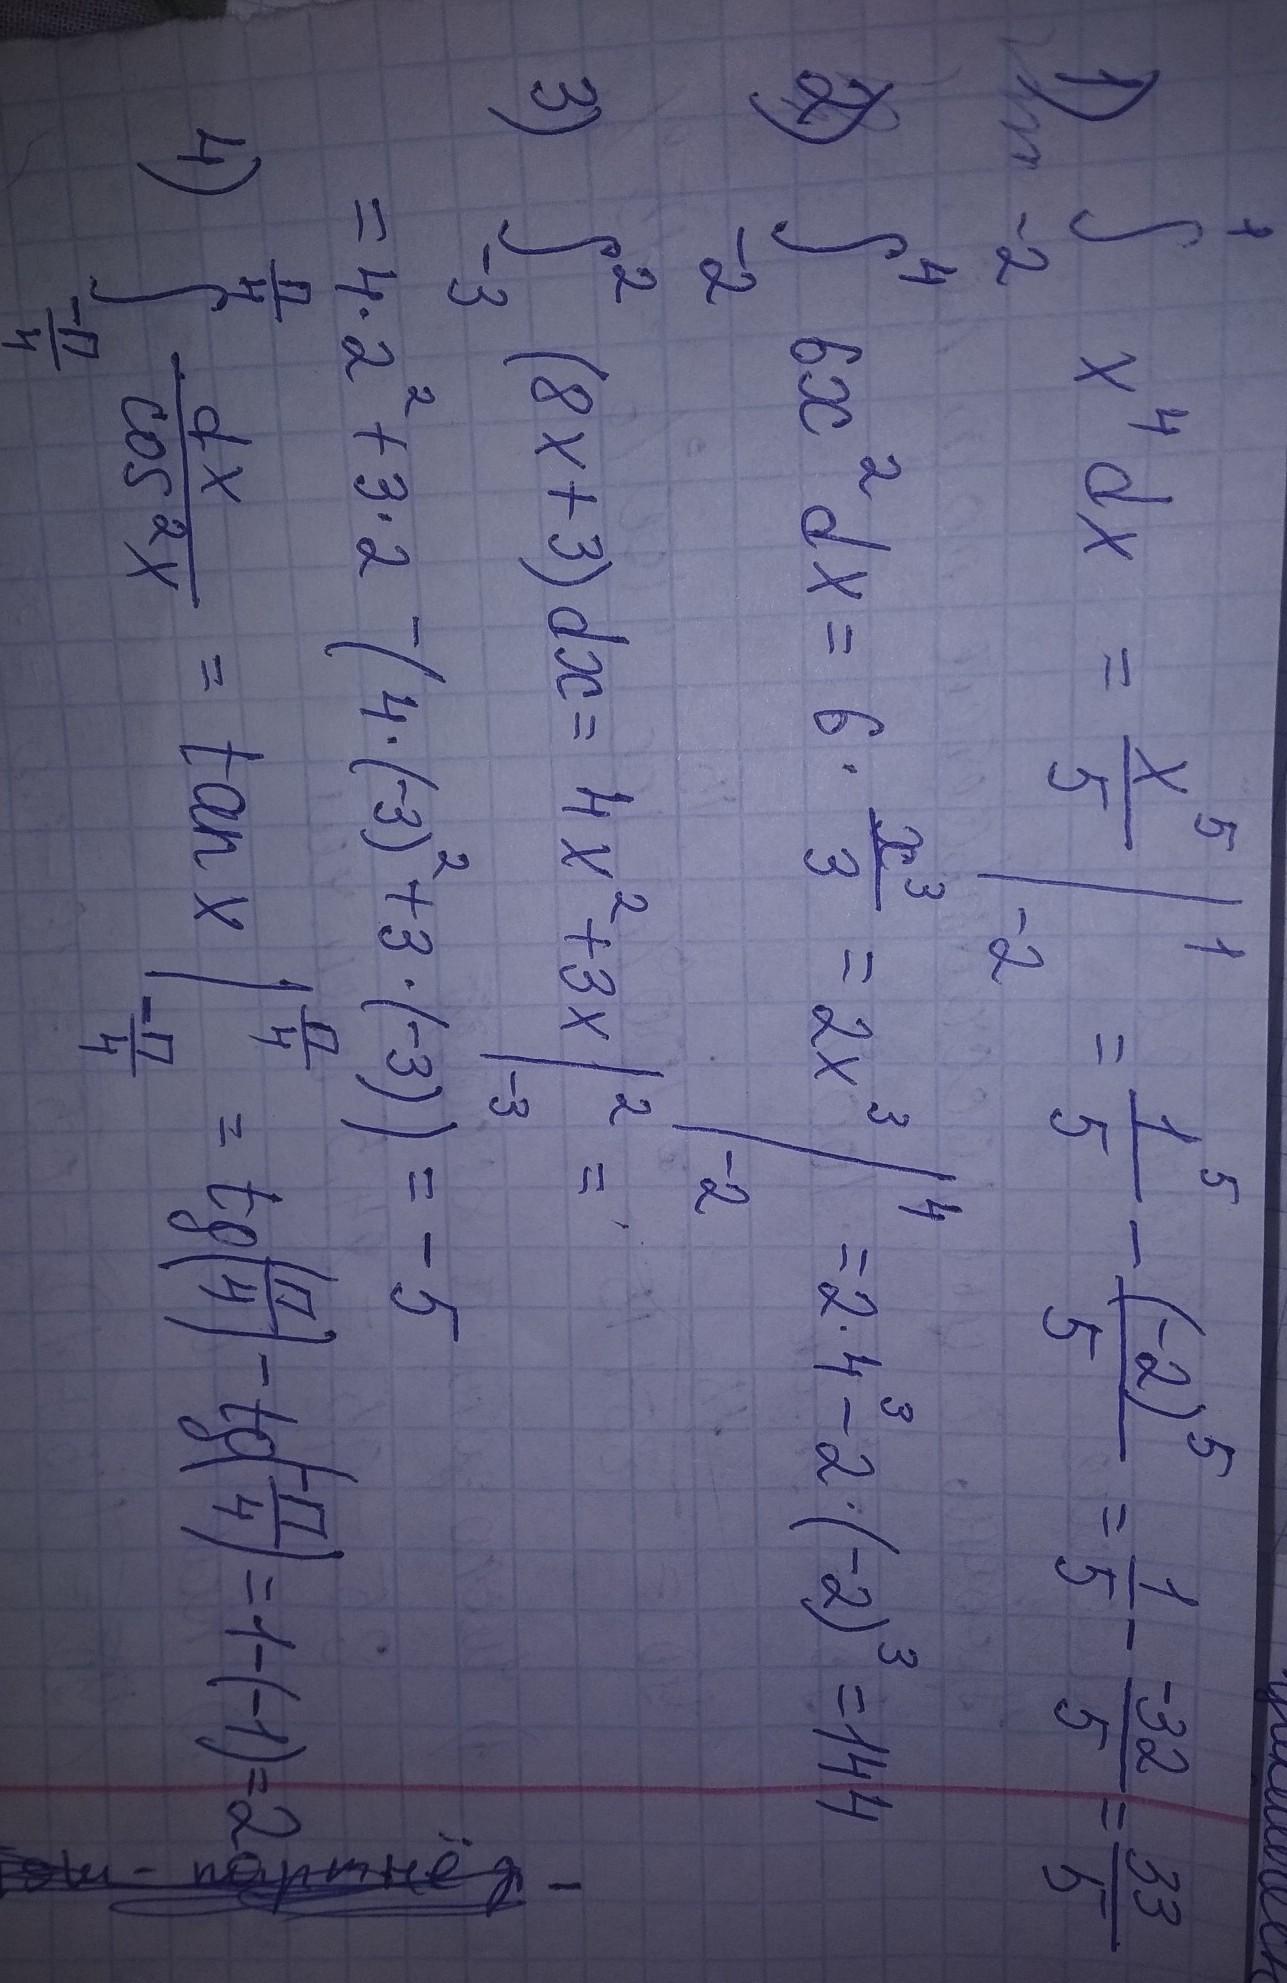 1) ∫₋₂¹ x⁴ dx = x⁵/5 |₋₂¹ = 1⁵/5 - (-2)⁵/5 = 1/5 - -32/5 = 33/5
2) ∫₋₂⁴ 6x² dx = 6 · x³/3 = 2x³ |₋₂⁴ = 2·4³ - 2·(-2)³ = 144
3) ∫₋₃² (8x+3)dx = 4x²+3x |₋₃² =
= 4·2²+3·2 -(4·(-3)²+3·(-3)) = -5
4) ∫_{-π/4}^{π/4} dx/cos²x = tan x |_{-π/4}^{π/4} = tg(π/4) - tg(-π/4) = 1-(-1) = 2